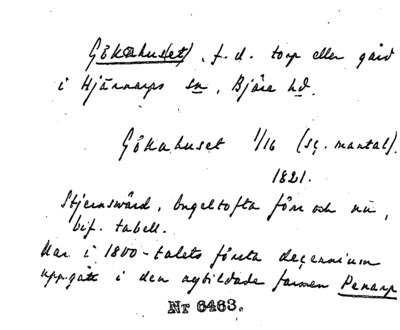 Gökahuset, f.d. torp eller gård
i Hjärnarps sn, Bjäre hd.
Gökahuset 1/16 (sç. mantal).
1821.
Stjernswärd, Engeltofta förr och nu,
bif. tabell.
Har i 1800-talets första decennium
uppgått i den nybildade farmen Penarp
Nr 6463.